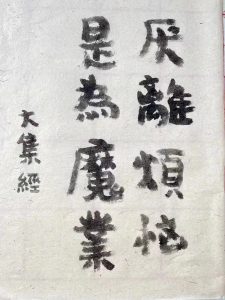 厌離煩恼
是為魔業
大集經